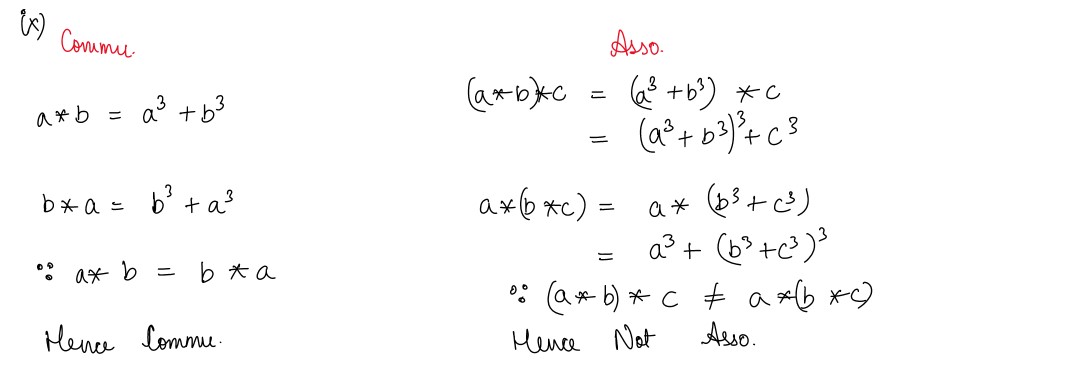 (x)
Commu.
a*b = a³ + b³
b*a = b³ + a³
∵ a* b = b * a
Hence Commu.
Asso.
(a*b)*c = (a³ + b³) * c
= (a³ + b³)³ + c³
a*(b *c) = a* (b³ + c³)
= a³ + (b³ + c³)³
∵ (a * b) * c ≠ a *(b * c)
Hence Not Asso.